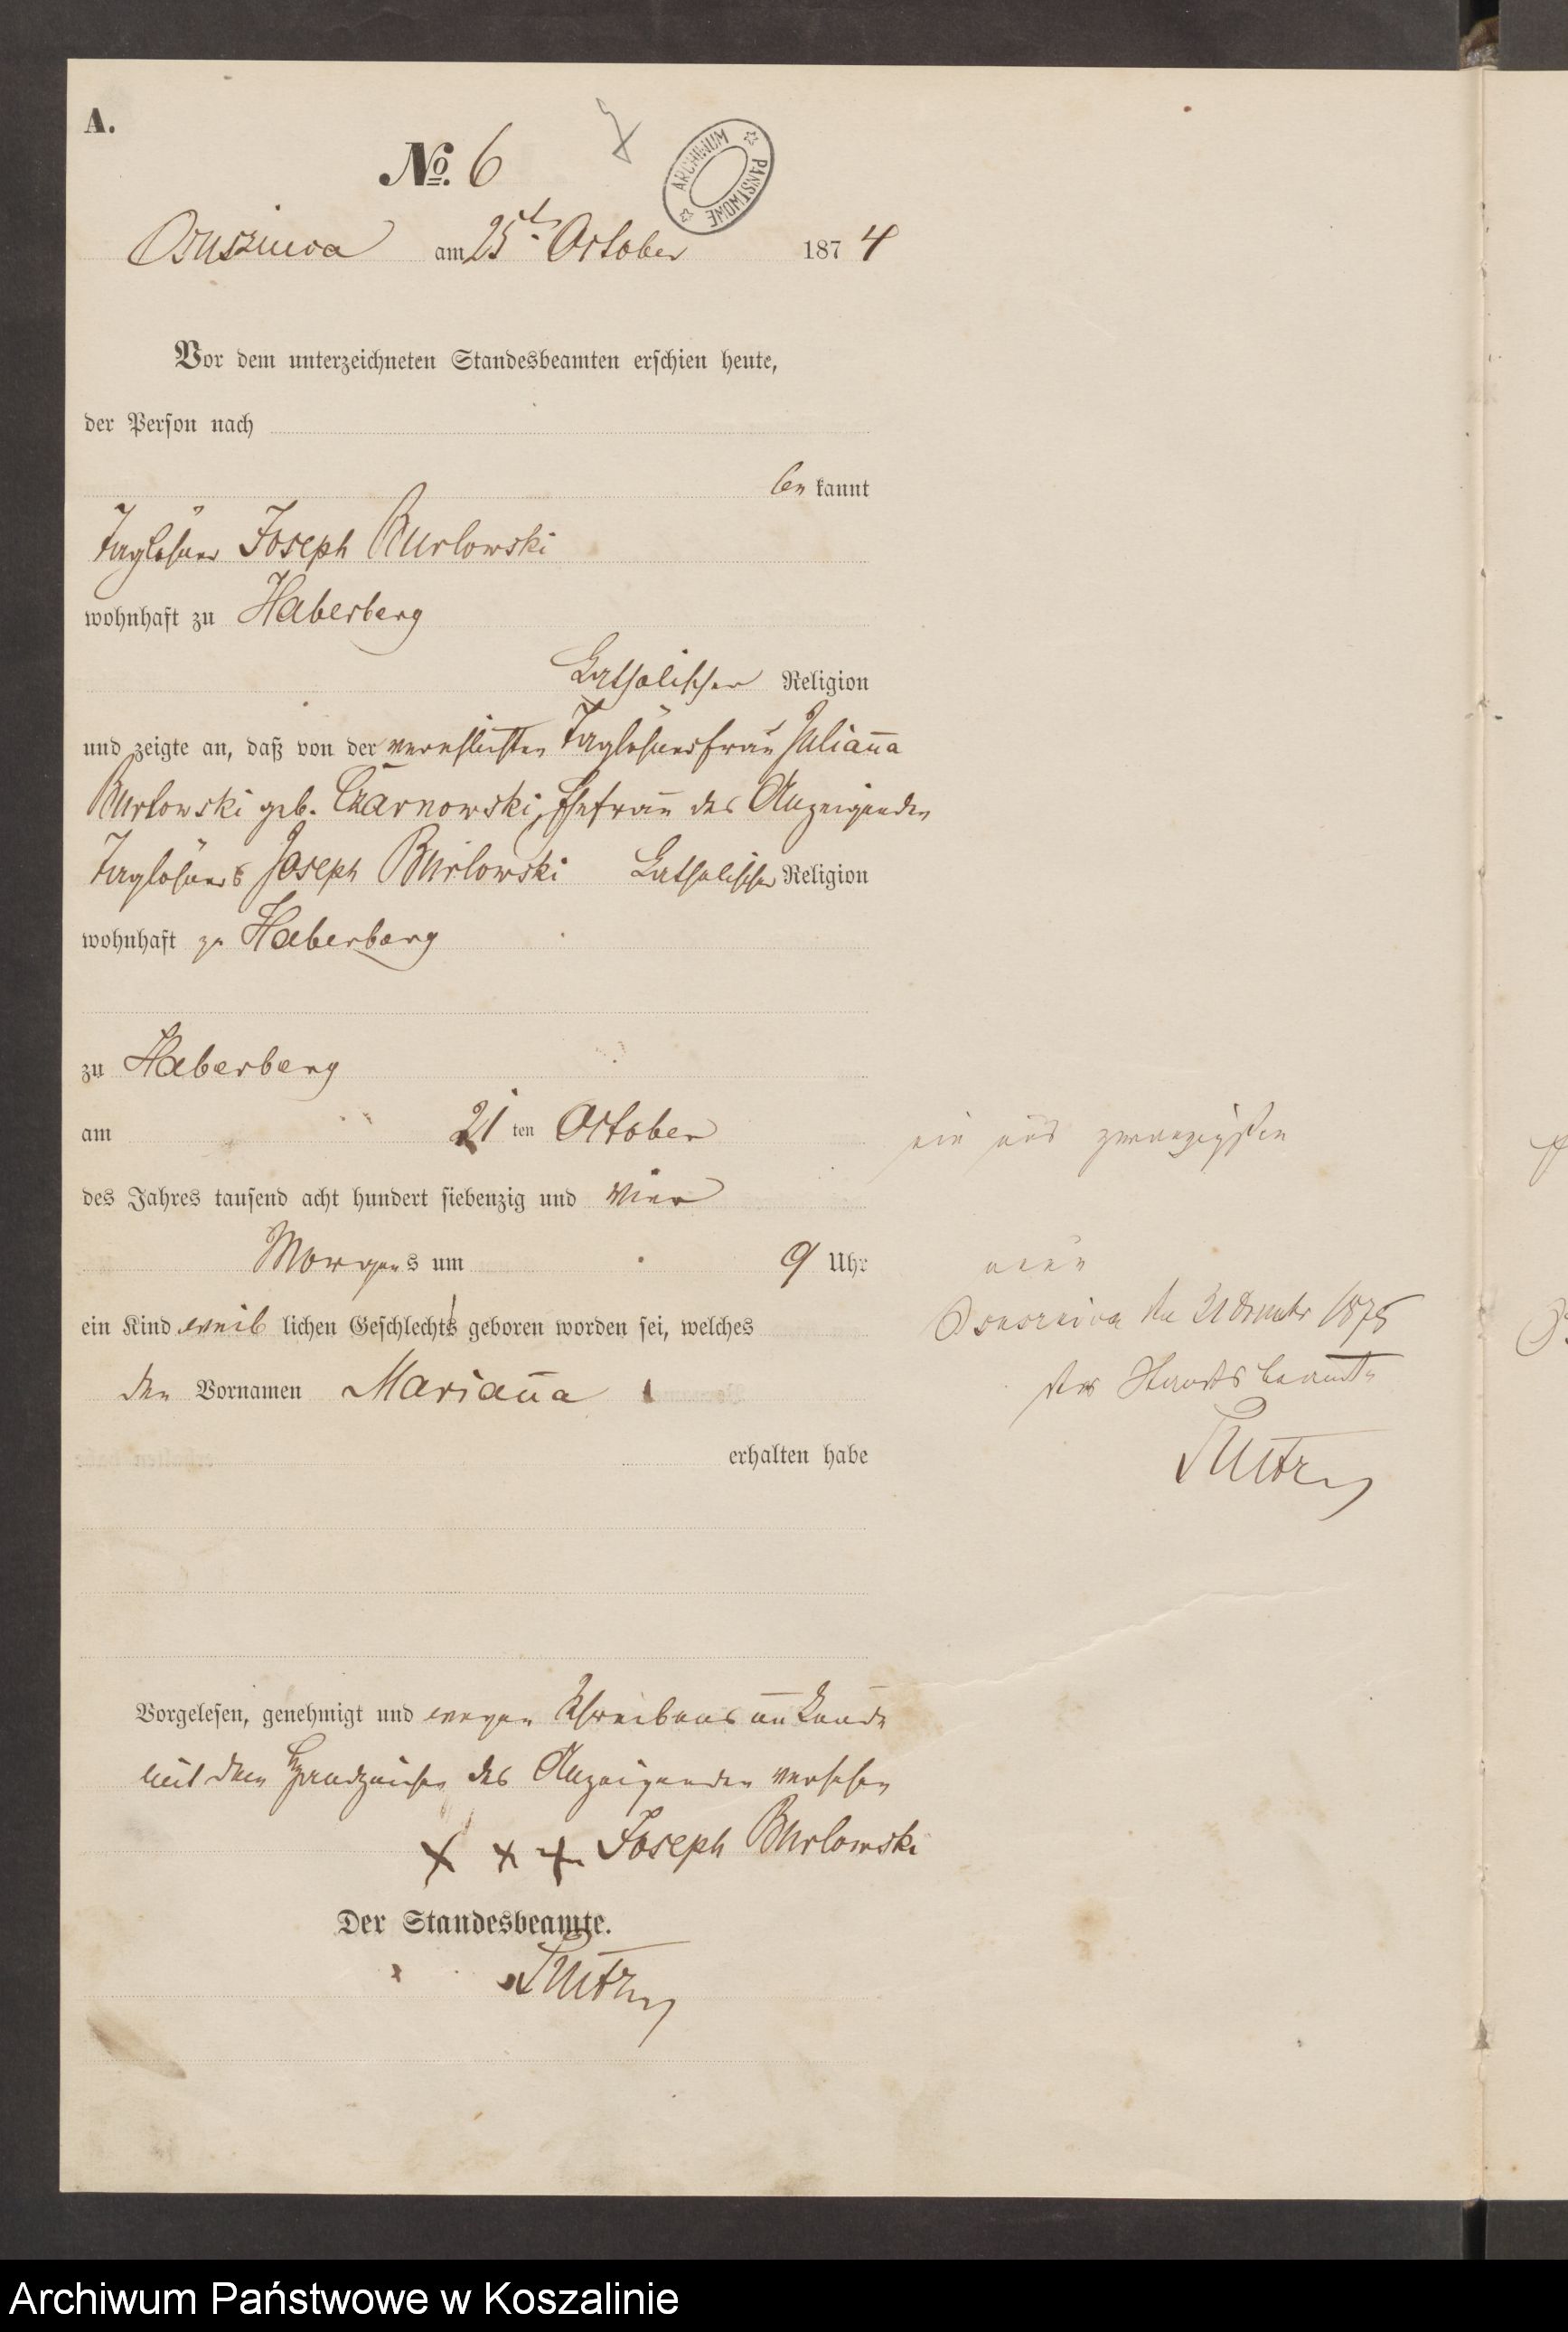 A.
No. 6
ARCHIWUM PAŃSTWOWE
Ossusznica am 25t October 1874
Vor dem unterzeichneten Standesbeamten erschien heute,
der Person nach
be kannt
Taglöhner Joseph Burlowski
wohnhaft zu Haberberg
katholischer Religion
und zeigte an, daß von der verehlichten Taglöhnerfrau Julianna
Burlowski geb. Czarnowski, Ehefrau des Anzeigenden
Taglöhners Joseph Burlowski katholischer Religion
wohnhaft zu Haberberg
zu Haberberg
am 21 ten October
ein und zwanzigsten
des Jahres tausend acht hundert siebenzig und vier
Morgens um 9 Uhr
neun
ein Kind weib lichen Geschlechts geboren worden sei, welches
den 31 1875
den Vornamen Marianna
der Standesbeamte
erhalten habe
Vorgelesen, genehmigt und wegen Schreibensunkunde
mit dem Handzeichen des Anzeigenden versehen
x x x Joseph Burlowski
Der Standesbeamte.
Archiwum Państwowe w Koszalinie